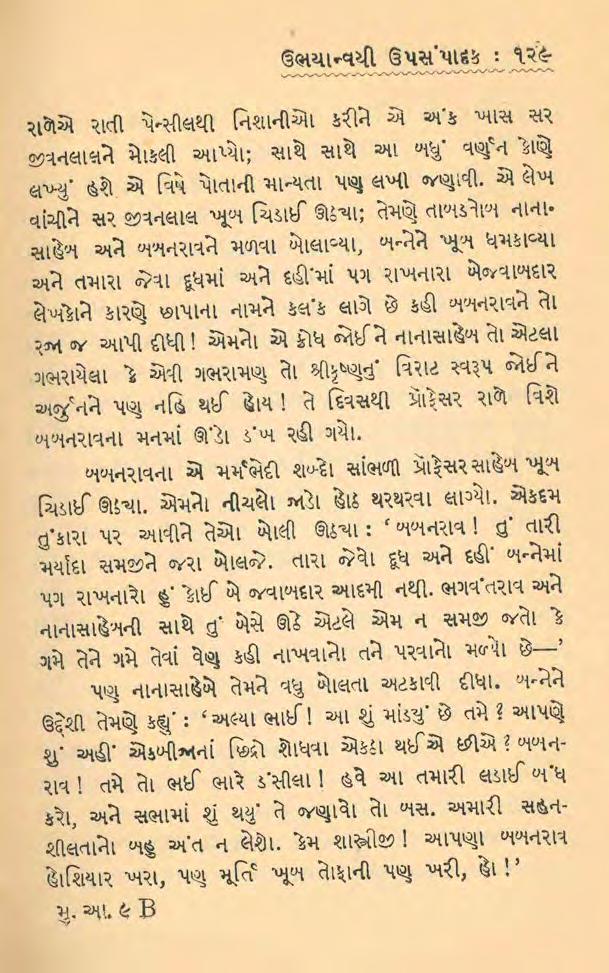 ઉભયાન્વયી ઉપસંપાદક : ૧૨૯
રાળેએ રાતી પેન્સીલથી નિશાનીઓ કરીને એ અંક ખાસ સર
જીવનલાલને મોકલી આપ્યો; સાથે સાથે આ બધું વર્ણન કોણે
લખ્યું હશે એ વિષે પોતાની માન્યતા પણ લખી જણાવી. એ લેખ
વાંચીને સર જીવનલાલ ખૂબ ચિડાઈ ઊઠ્યા; તેમણે તાબડતોબ નાના-
સાહેબ અને બબનરાવને મળવા બોલાવ્યા, બન્નેને ખૂબ ધમકાવ્યા
અને તમારા જેવા દૂધમાં અને દહીંમાં પગ રાખનારા બેજવાબદાર
લેખકોને કારણે છાપાના નામને કલંક લાગે છે કહી બબનરાવને તો
રજા જ આપી દીધી! એમનો એ ક્રોધ જોઈને નાનાસાહેબ તો એટલા
ગભરાયેલા કે એવી ગભરામણ તો શ્રીકૃષ્ણનું વિરાટ સ્વરૂપ જોઈને
અર્જુનને પણ નહિ થઈ હોય! તે દિવસથી પ્રૉફેસર રાળે વિશે
બબનરાવના મનમાં ઊંડો ડંખ રહી ગયો.
બબનરાવના એ મર્મભેદી શબ્દો સાંભળી પ્રૉફેસરસાહેબ ખૂબ
ચિડાઈ ઊઠ્યા. એમનો નીચલો જાડો હોઠ થરથરવા લાગ્યો. એકદમ
તુંકારા પર આવીને તેઓ બોલી ઊઠ્યા : ‘બબનરાવ! તું તારી
મર્યાદા સમજીને જરા બોલજે. તારા જેવો દૂધ અને દહીં બન્નેમાં
પગ રાખનારો હું કોઈ બે જવાબદાર આદમી નથી. ભગવંતરાવ અને
નાનાસાહેબની સાથે તું બેસે ઊઠે એટલે એમ ન સમજી જતો કે
ગમે તેને ગમે તેવાં વેણ કહી નાખવાનો તને પરવાનો મળ્યો છે—’
પણ નાનાસાહેબે તેમને વધુ બોલતા અટકાવી દીધા. બન્નેને
ઉદ્દેશી તેમણે કહ્યું : ‘અલ્યા ભાઈ! આ શું માંડ્યું છે તમે? આપણે
શું અહીં એકબીજાનાં છિદ્રો શોધવા એકઠા થઈએ છીએ? બબન-
રાવ! તમે તો ભઈ ભારે ડંસીલા! હવે આ તમારી લડાઈ બંધ
કરો, અને સભામાં શું થયું તે જણાવો તો બસ. અમારી સહન-
શીલતાનો બહુ અંત ન લેશો. કેમ શાસ્ત્રીજી! આપણા બબનરાવ
હોશિયાર ખરા, પણ મૂર્તિ ખૂબ તોફાની પણ ખરી, હો!’
મુ. આ. ૯ B